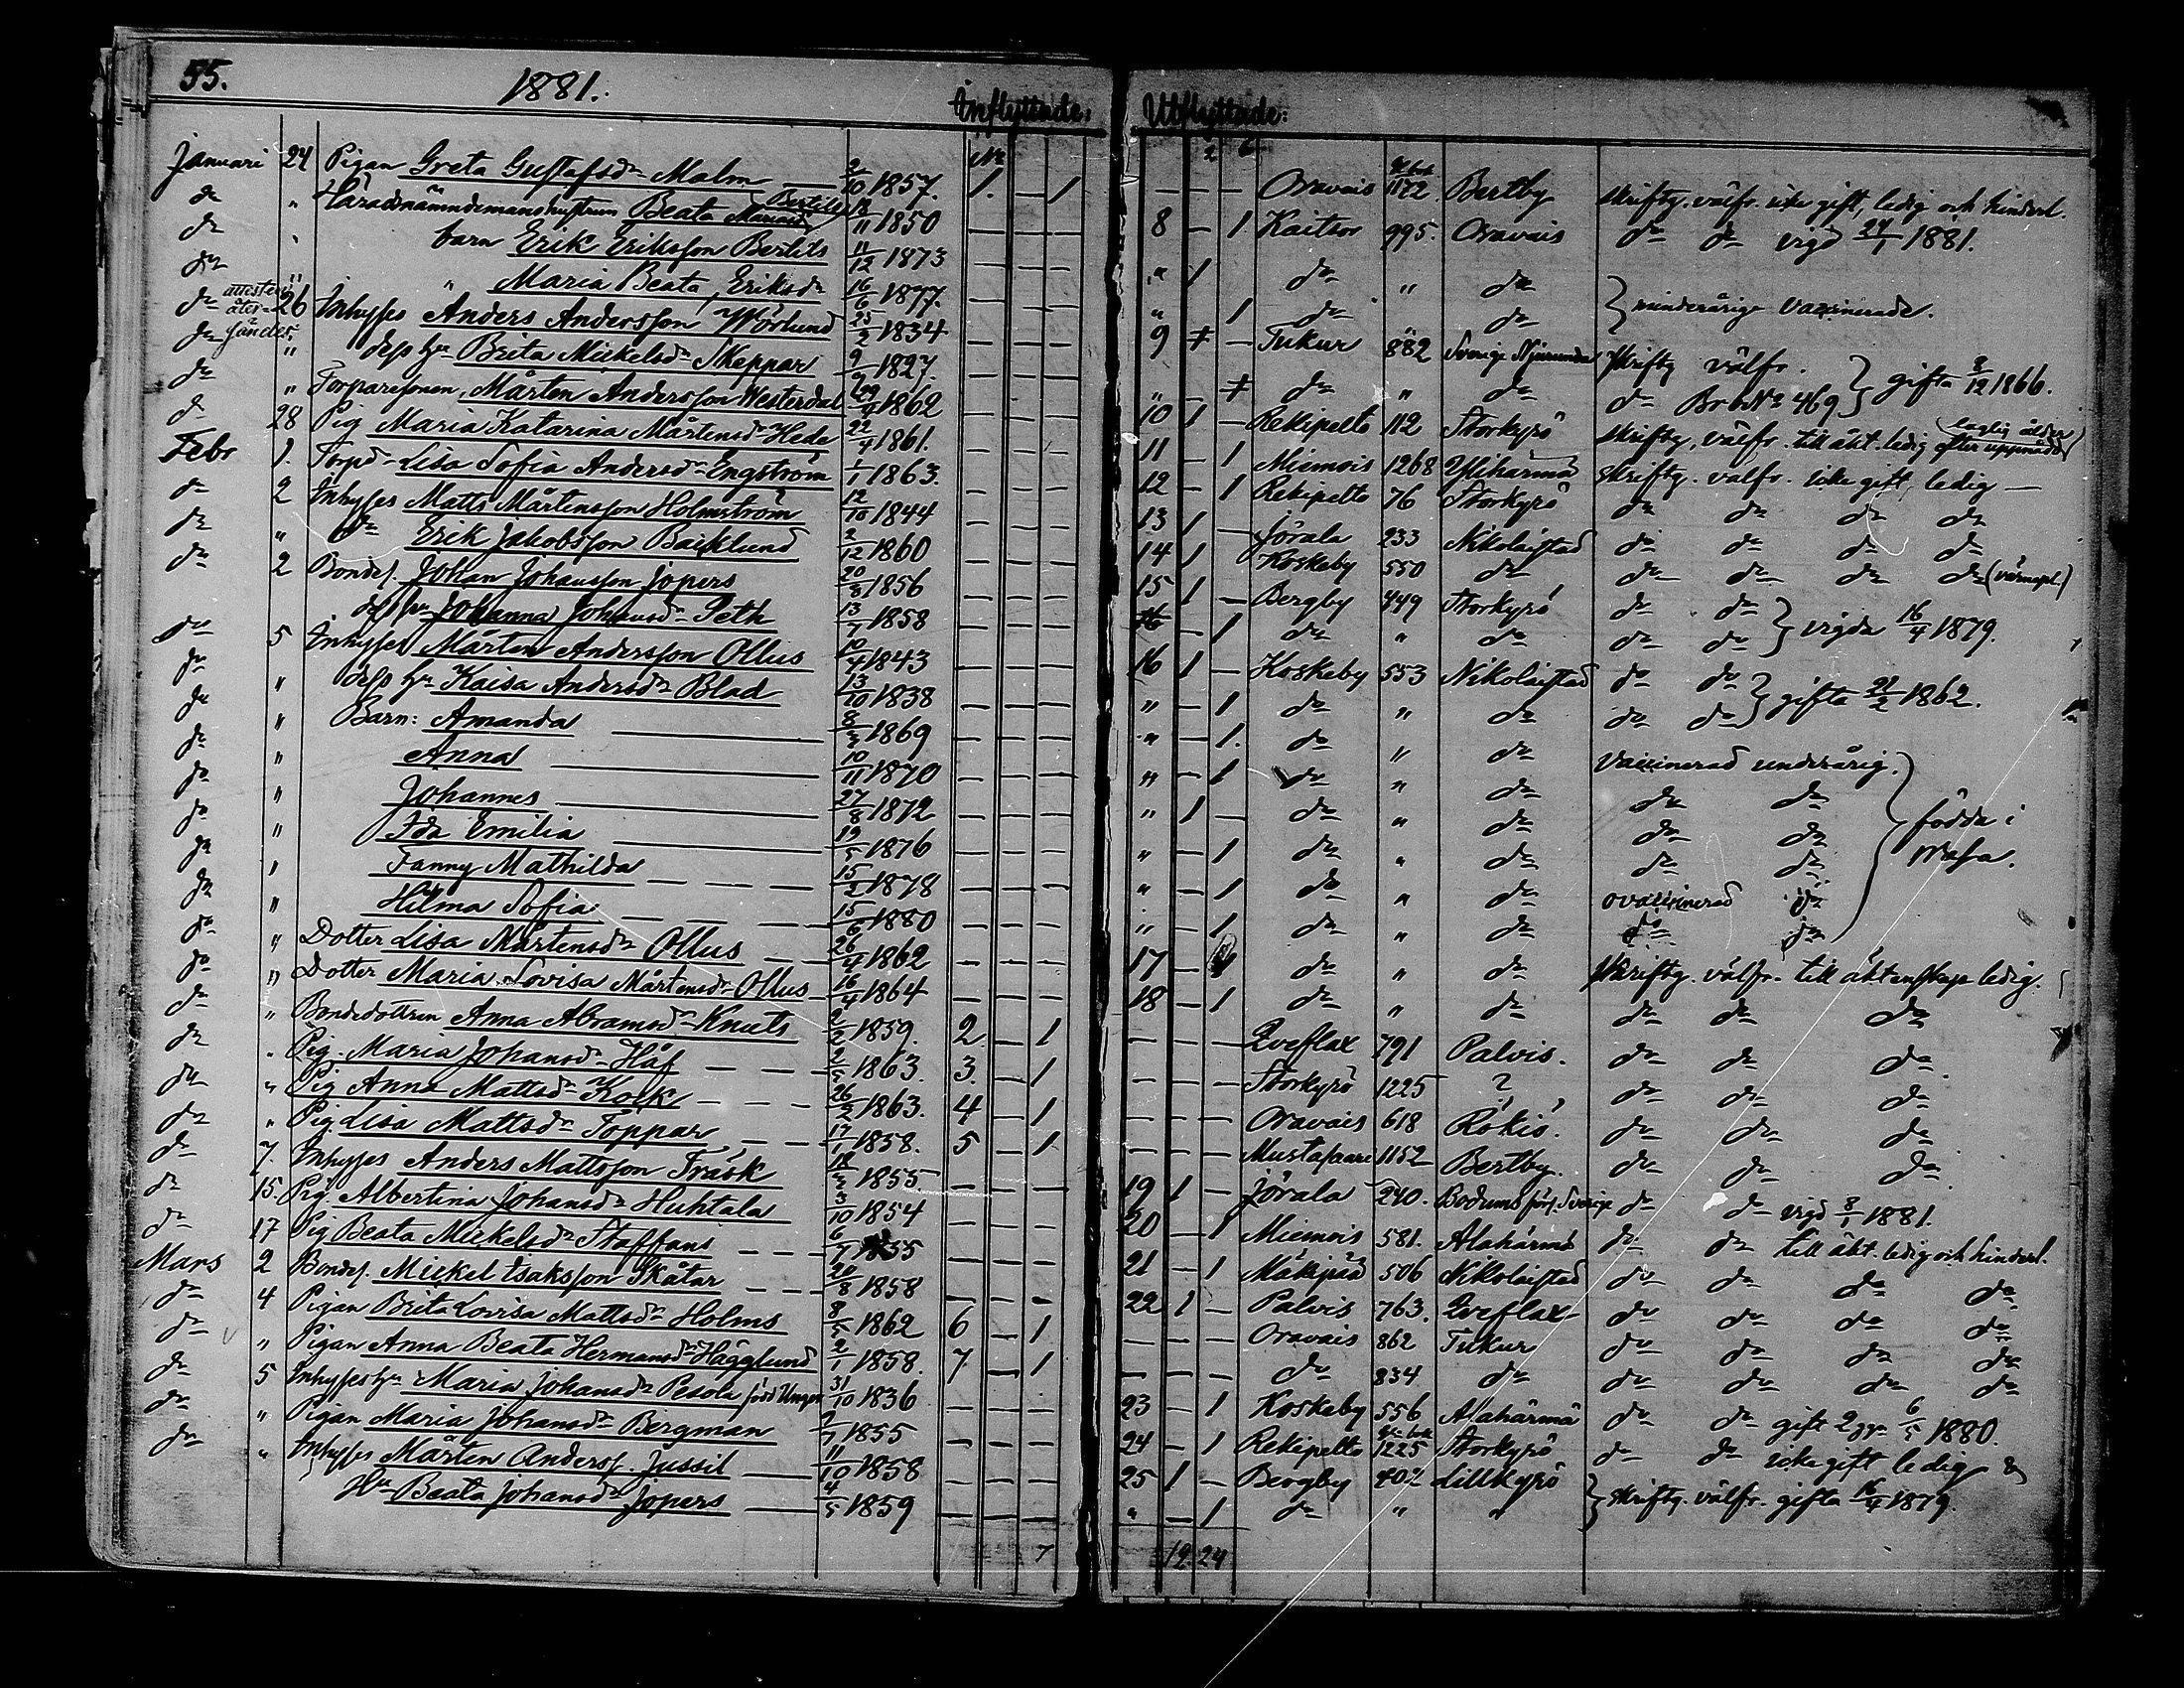 55. 1881. Inflyttade: Utflyttade:
No
Januari 24 Pigan Greta Gustafsdr Malm 2/10 1857. 1. — 1 — — — Oravais 1172. Bertby skriftg. välfr. icke gift, ledig och hinderl.
do " Häradsnämndemanshustrun Beata Mariasdr Bertils 18/11 1850 — — — 8 — 1 Kaitsor 995. Oravais do do vigd 24/1 1881.
do " barn Erik Eriksson Bertils 11/12 1873 — — — " 1 do " do } minderårige vaccinerade.
do " " Maria Beata Eriksdr 16/6 1877. — — — " 1 do do
do attesten åter- 26 Inhyses Anders Andersson Wörlund 25/2 1834 — — — 9 + — Tukur 882 Sverige Njurunda skriftg välfr. } gifta 8/12 1866.
do sändes. " dess hu Brita Mickelsdr Skeppar 9/9 1827 — — — " — + do " do do Brb No 469
do " Torparesonen, Mårten Andersson Westerdal 29/9 1862 — — — 10 1 — Rekipelto 112 Storkyrö skriftg, välfr. till äkt. ledig efter uppnådd laglig ålder
do 28 Pig Maria Katarina Mårtensdr Heda 22/4 1861. — — — 11 — 1 Miemois 1268 Ylihärmä skriftg. välfr. icke gift, ledig —
Febr 1. Torpd Lisa Sofia Andersdr Engström 1/1 1863. — — — 12 — 1 Rekipelto 76 Storkyrö do do do do
do 2 Inhyses Matts Mårtensson Holmström 12/10 1844 — — — 13 1 — Jörala 233 Nikolaistad do do do do
do " do Erik Jakobsson Backlund 2/12 1860 — — — 14 1 Koskeby 550 do do do do do (värnepl.)
do 2 Bondes. Johan Johansson Jopers 20/8 1856 — — — 15 1 — Bergby 449 Storkyrö do do } vigda 16/4 1879.
dess hu Johanna Johansdr Seth 13/7 1858 — — — 16 — 1 do " do do do
do 5 Inhyses Mårten Andersson Ollus 10/4 1843 — — — 16 1 — Koskeby 553 Nikolaistad do do } gifta 21/2 1862.
do " dess hu Kaisa Andersdr Blad 13/10 1838 — — — " — 1 do " do do do
do " Barn: Amanda 8/2 1869 — — — " — 1. do " do Vaccinerad underårig.
do " Anna 10/11 1870 — — — " — 1 do " do do do
do " Johannes 27/8 1872 — — — " 1 — do " do do do födda i
do " Ida Emilia 19/5 1876 — — — " — 1 do " do do do Wasa.
do " Fanny Mathilda 15/2 1878 — — — " — 1 do " do ovaccinerad do
do " Hilma Sofia 15/6 1880 — — — " — 1 do " do do do
do " Dotter Lisa Mårtensdr Ollus 26/4 1862 — — — 17 — 1 do " do skriftg. välfr. till äktenskap ledig.
do " Dotter Maria Lovisa Mårtensdr Ollus 16/4 1864 — — — 18 — 1 do " do do do do
do " Bondedottren Anna Abramsdr Knuts 2/2 1859. 2 — 1 — — — Qveflax 791 Palvis. do do do
do " Pig. Maria Johansdr Håf 2/5 1863. 3. — 1 — — — Storkyrö 1225 ? do do do
do " Pig Anna Mattsdr Kock 26/2 1863. 4 — 1 — — — Oravais 618 Rökiö. do do do
do " Pig. Lisa Mattsdr Toppar 17/1 1858. 5 — 1 — — — Mustasaari 1152 Bertby. do do do
do 7. Inhyses Anders Mattsson Träsk 18/2 1855 — — — 19 1 — Jörala 240. Bodums förs. Sverige do do vigd 8/1 1881.
do 15. Pig. Albertina Johansdr Huhtala 3/10 1854 — — — 20 — 1 Miemois 581. Alahärmä do do till äkt. ledig och hinderl.
do 17 Pig Beata Mickelsdr Staffans 6/7 1855 — — — 21 — 1 Mäkipää 506 Nikolaistad do do do do
Mars 2 Bondes. Mickel Isaksson Skåtar 20/8 1858 — — — 22 1 — Palvis 763. Qveflax do do do do
do 4 Pigan Brita Lovisa Mattsdr Holms 8/5 1862 6 — 1 — — — Oravais 862 Tukur do do do do
do " Pigan Anna Beata Hermansdr Hägglund 2/1 1858. 7. — 1 — — — do 834 do do do do do
do 5 Inhyses hu Maria Johansdr Pesola 31/10 1836 — — — 23 — 1 Koskeby 556 Alahärmä do do gift 2 ggr 6/5 1880.
do " Pigan Maria Johansdr Bergman 2/7 1855 — — — 24 — 1 Rekipelto 1225 Storkyrö do do icke gift ledig
do " Inhyses Mårten Anderss. Jussil 11/10 1858 — — — 25 1 — Bergby 402 Lillkyrö } skriftg. välfr. gifta 16/4 1879.
Hu Beata Johansdr Jopers 4/5 1859 — — — " — 1 do " "
7 12. 24